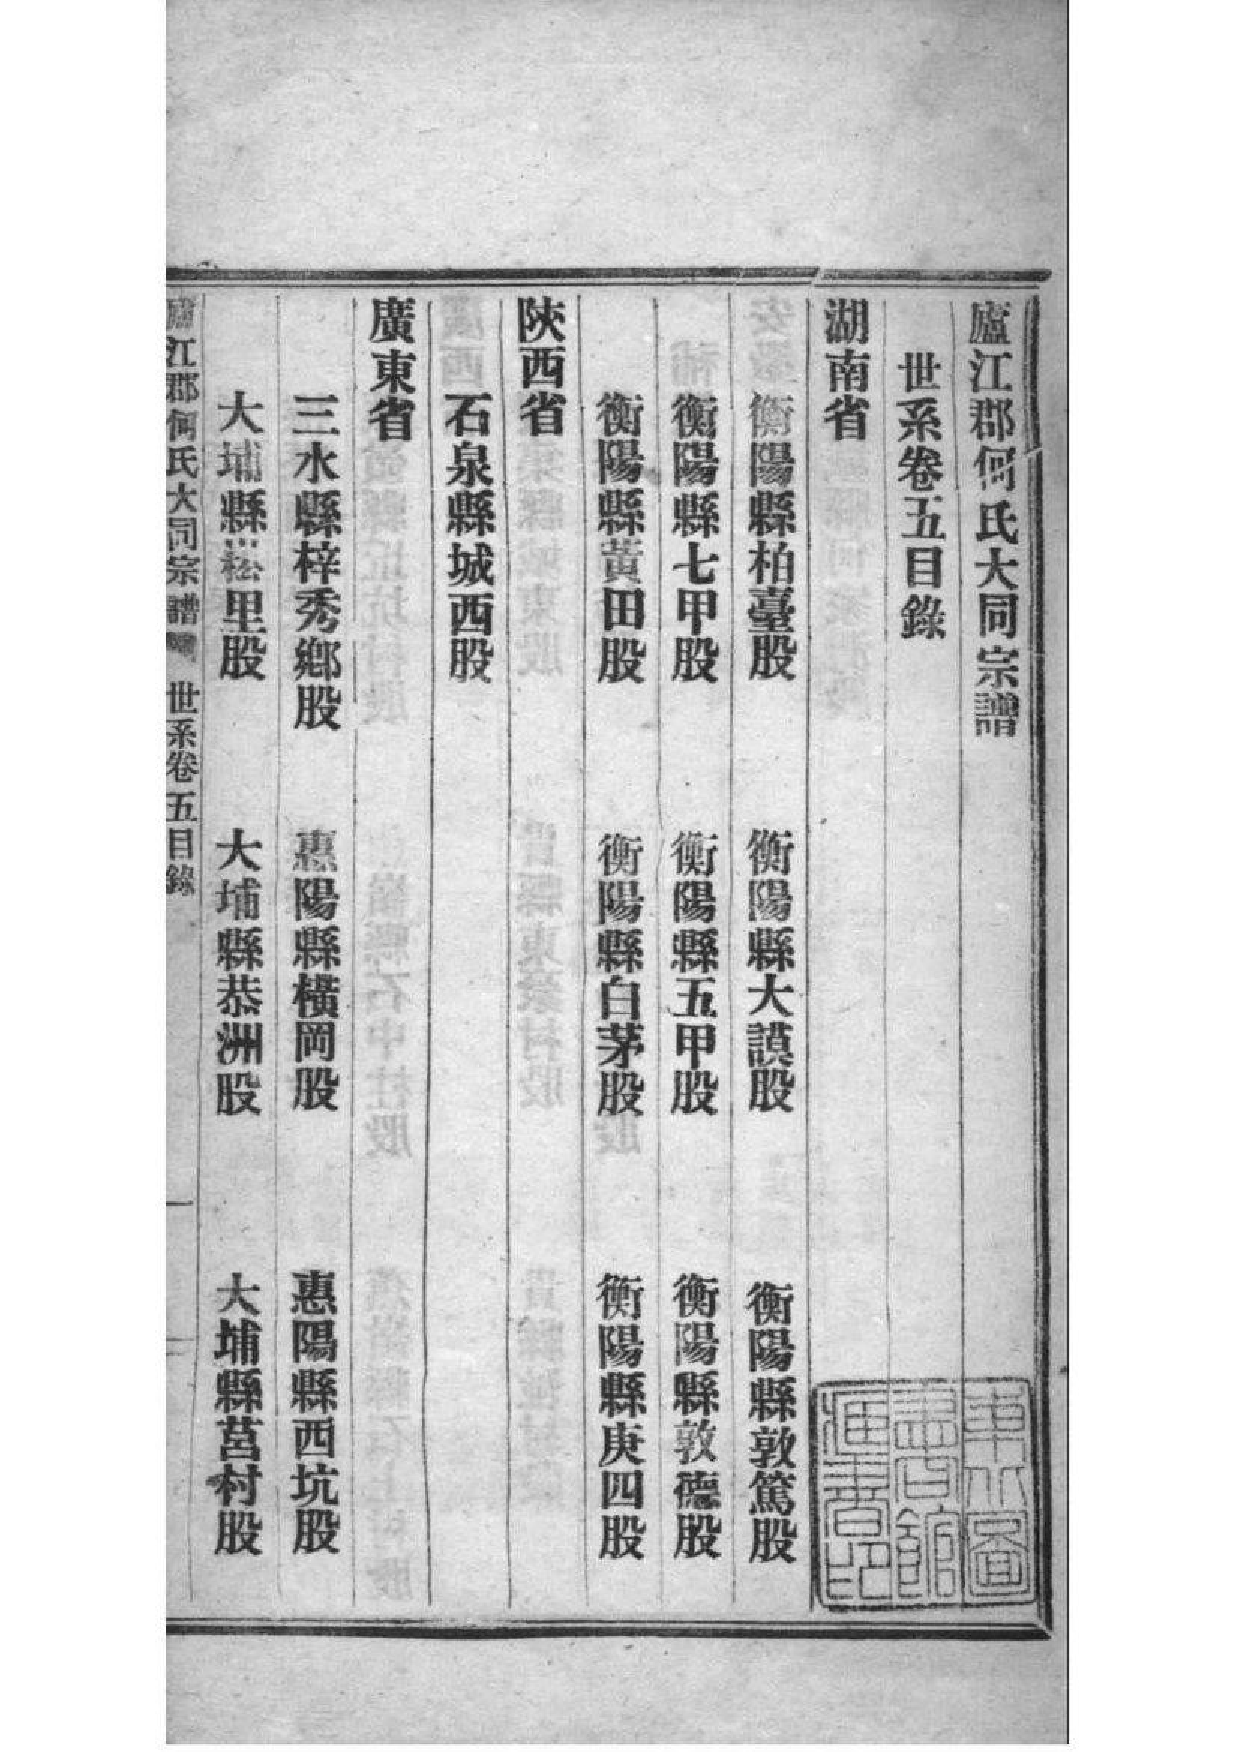 廬江郡何氏大同宗譜
世系卷五目錄
湖南省
衡陽縣柏臺股 衡陽縣大謨股 衡陽縣敦篤股
衡陽縣七甲股 衡陽縣五甲股 衡陽縣敦德股
衡陽縣黃田股 衡陽縣白茅股 衡陽縣庚四股
陝西省
石泉縣城西股
廣東省
三水縣梓秀鄉股 惠陽縣橫岡股 惠陽縣西坑股
大埔縣崧里股 大埔縣恭洲股 大埔縣莒村股
廬江郡何氏大同宗譜 世系卷五目錄 一